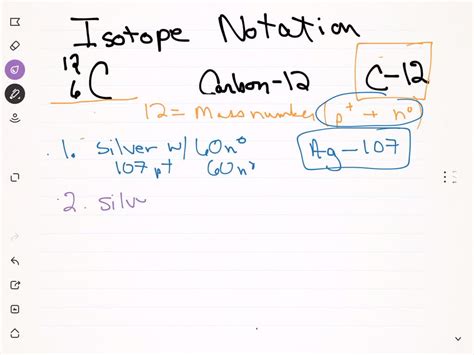 Isotope Notation
12
6 C Carbon-12 C-12
12 = Mass number (p+ + n°)
1. silver w/ 60n° Ag-107
107 p+ 60n°
2. silv